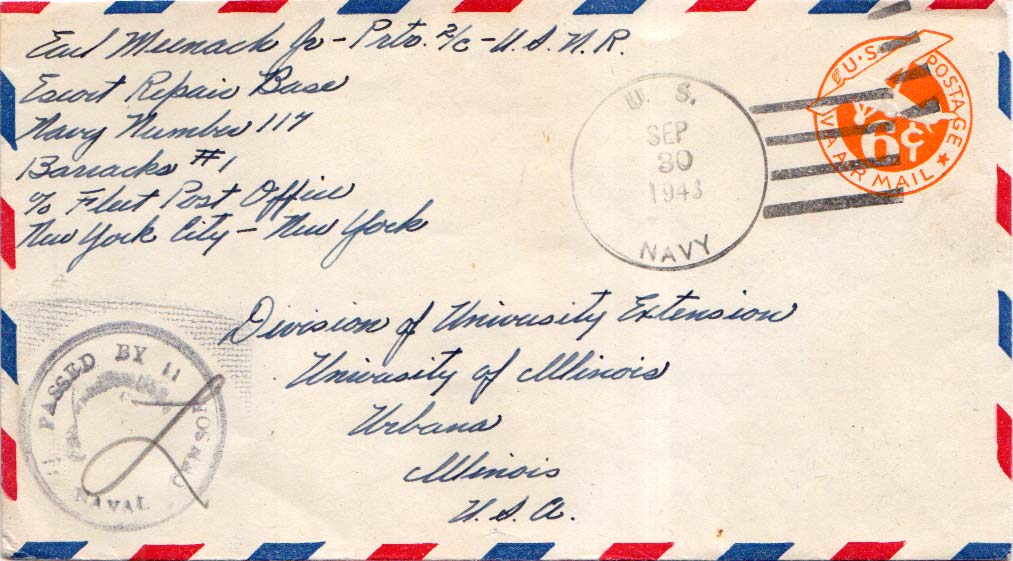 Earl Meenach Jr - Prtr. 2/c - U.S.N.R.
Escort Repair Base
Navy Number 117
Barracks #1
c/o Fleet Post Office
New York City - New York
U. S.
SEP
30
1943
NAVY
U.S. POSTAGE
6¢
VIA AIR MAIL
Division of University Extension
University of Illinois
Urbana
Illinois
U.S.A.
PASSED BY
NAVAL CENSOR